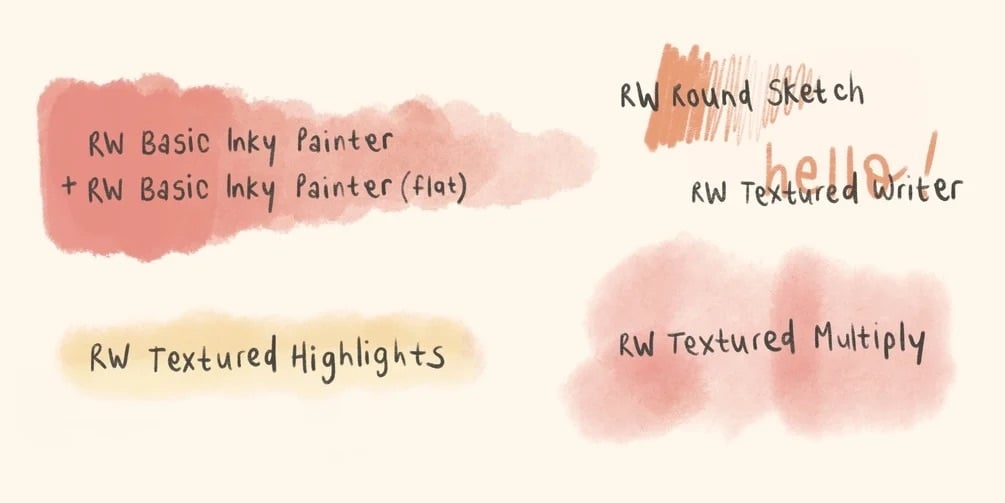 RW Basic Inky Painter
+ RW Basic Inky Painter (flat)
RW Round Sketch
hello!
RW Textured Writer
RW Textured Highlights
RW Textured Multiply